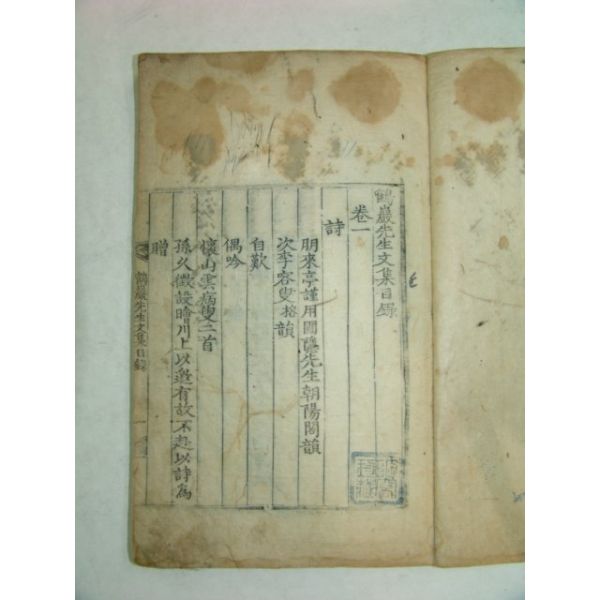 鶴巖先生文集目錄
卷一
詩
朋來亭謹用圃隱先生朝陽閣韻
次李容叟格韻
自歎
偶吟
懷山雲病叟二首
孫久徵設曕川上以邀有故不赴以詩爲
贈
鶴巖先生文集目錄 一